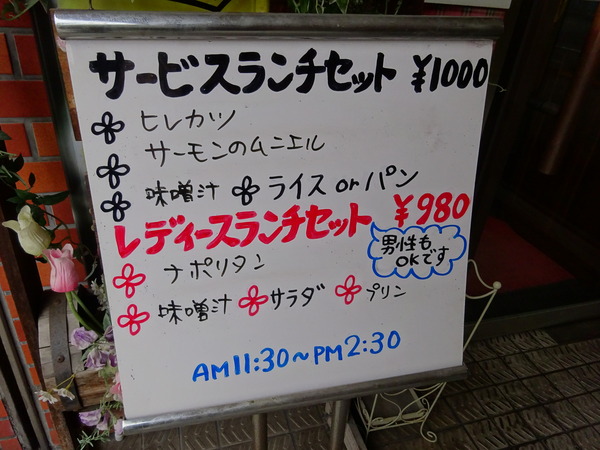 サービスランチセット ¥1000
ヒレカツ
サーモンのムニエル
味噌汁 ライス or パン
レディースランチセット ¥980
男性も
OKです
ナポリタン
味噌汁 サラダ プリン
AM11:30～PM2:30